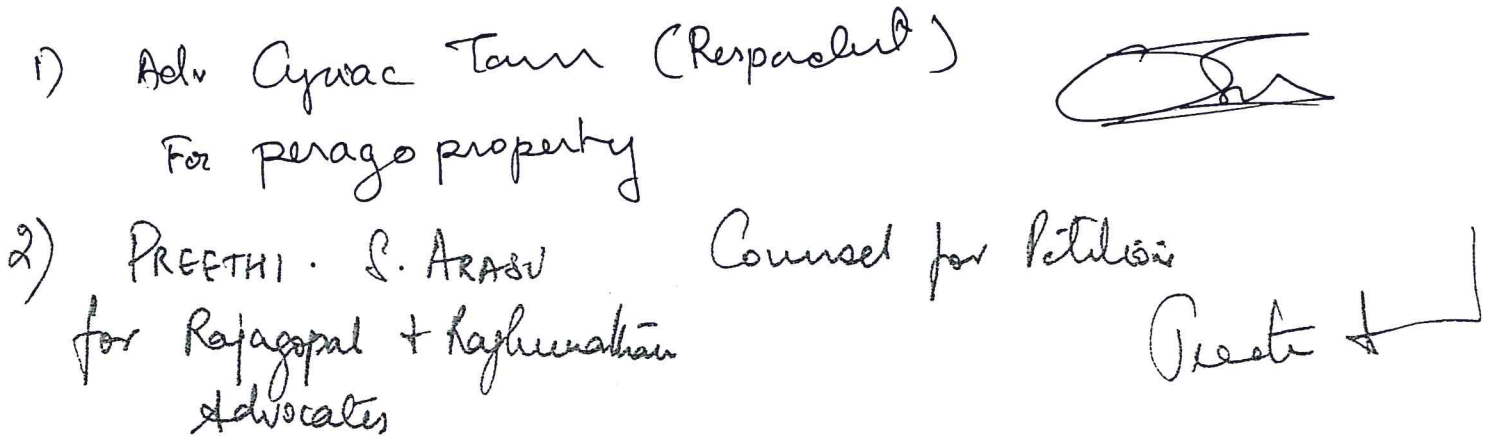 1) Adv Cyriac Tom (Respondent)
For perago property
2) PREETHI. S. ARASU Counsel for Petitioner
for Rajagopal + Raghunathan
Advocates